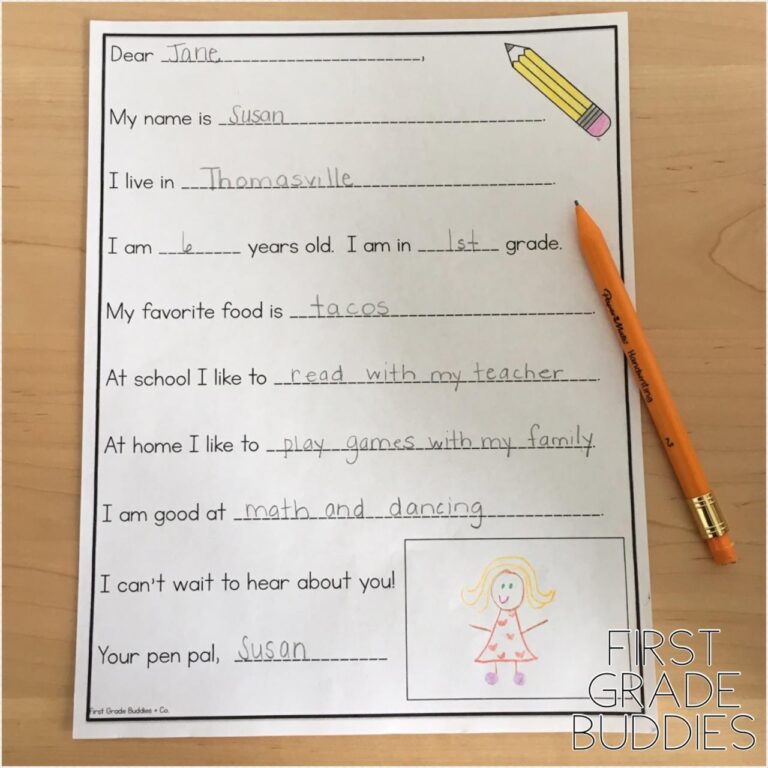 Dear Jane,
My name is Susan.
I live in Thomasville.
I am 6 years old. I am in 1st grade.
My favorite food is tacos.
At school I like to read with my teacher.
At home I like to play games with my family.
I am good at math and dancing.
I can't wait to hear about you!
Your pen pal, Susan
First Grade Buddies + Co.
PaperMate Handwriting 2
FIRST
GRADE
BUDDIES